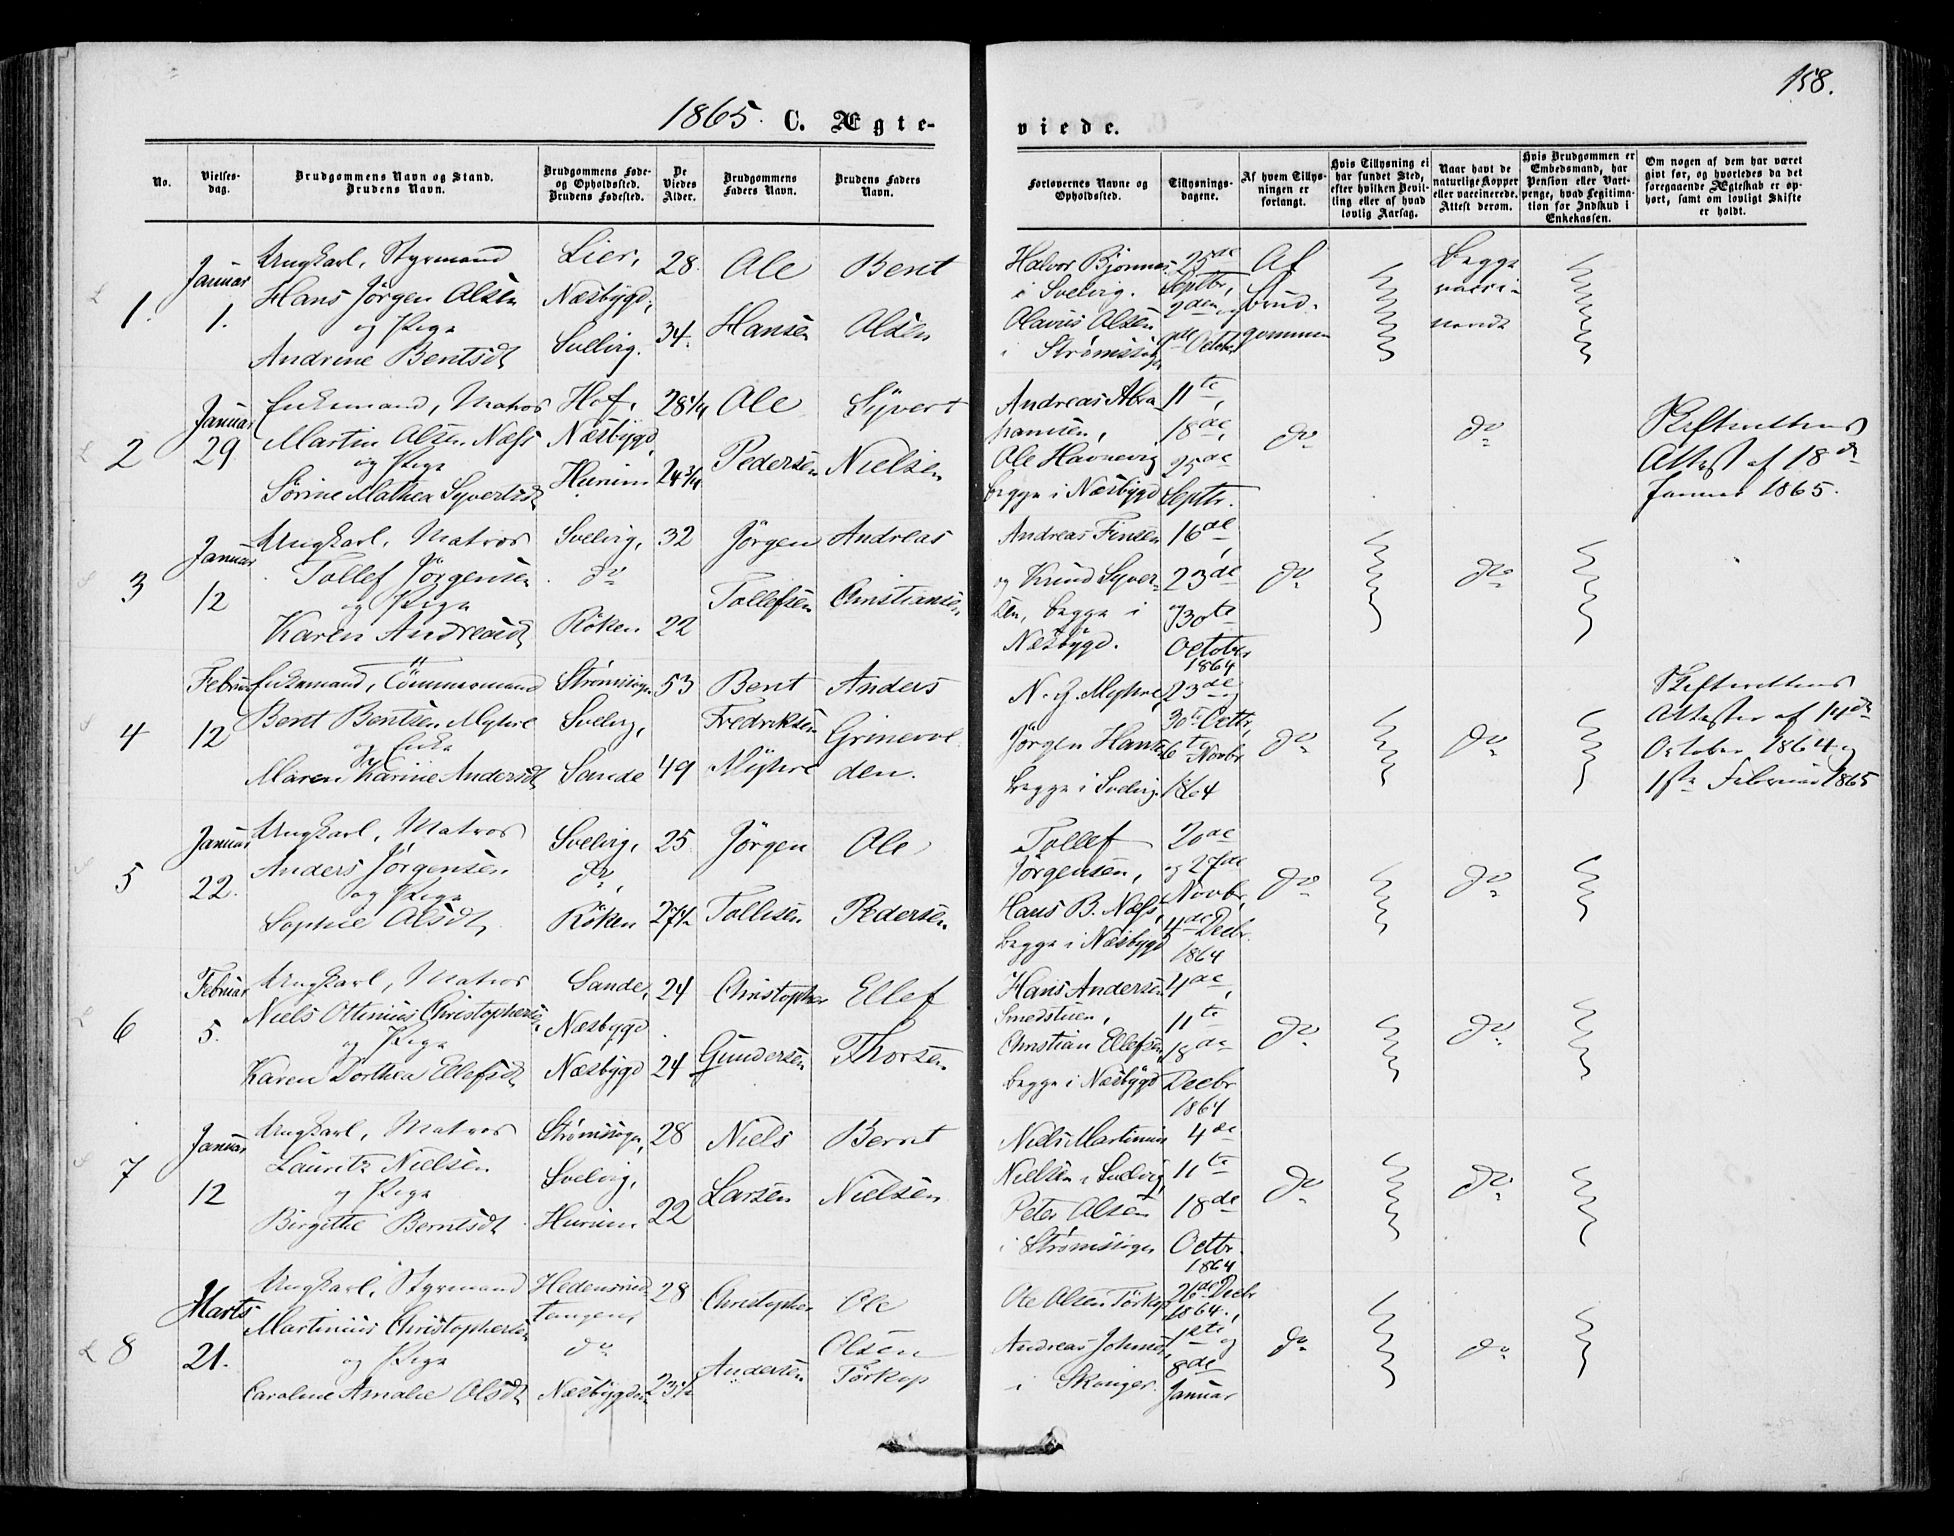 158.
1865. C. Ægte-
viede.
No.
Vielses-
dag.
Brudgommens Navn og Stand.
Brudens Navn.
Brudgommens Føde-
og Opholdssted.
Brudens Fødested.
De
Viedes
Alder.
Brudgommens
Faders Navn.
Brudens Faders
Navn.
Forlovernes Navne og
Opholdssted.
Tillysnings-
dagene.
Af hvem Tillys-
ningen er
forlangt.
Hvis Tillysning ei
har fundet Sted,
efter hvilken Bevil-
ling eller af hvad
lovlig Aarsag.
Naar havt de
naturlige Kopper
eller vaccinerede.
Attest derom.
Hvis Brudgommen er
Embedsmand, har
Pension eller Vart-
penge, hvad Legitima-
tion for Indskud i
Enkekassen.
Om nogen af dem har været
givt før, og hvorledes da det
foregaaende Ægteskab er op-
hørt, samt om lovligt Skifte
er holdt.
1.
Januar
1.
Ungkarl, Styrmand
Hans Jørgen Olsen
og Pige
Andrine Bentsdt
Lier,
Næsbygd,
Svelvig.
28.
34.
Ole
Hansen
Bent
Olsen
Halvor Bjønnes
i Svelvig.
Olavus Olsen
i Strømssog
25de
Septbr,
2den og
9de Octobr
Af
Brud-
gommen
Begge
vacci-
nerede
2
Januar
29.
Enkemand, Matros
Martin Olsen Næss
og Pige
Sørine Mathea Syvertsdt
Hof,
Næsbygd,
Hurum
28 1/4
24 3/4
Ole
Pedersen
Syvert
Nielsen
Andreas Abra-
hamsen,
Ole Havnevig
begge i Næsbygd
11te,
18de,
25de
Septbr.
do
do
Skifterettens
Attest af 18de
Januar 1865.
3
Januar
12
Ungkarl, Matros
Tollef Jörgensen
og Pige
Karen Andreasdt
Svelvig,
do
Röken
32
22
Jörgen
Tollefsen
Andreas
Christiansen
Andreas Finsen
og Knud Syver-
sen, begge i
Næsbygd.
16de,
23de
og 30te
October
1864
do
do
4
Februar
12
Enkemand, Tömmermand
Bent Bentsen Myhre
og Enke
Maren Karine Andersdt
Strømssogn
Svelvig,
Sande
53
49
Bent
Fredriksen
Myhre
Anders
Grinerve
den.
N. J. Myhre,
Jörgen Hansen
begge i Svelvig.
23de og
30te Octbr,
6te Novbr
1864
do
do
Skifterettens
Attester af 14de
October 1864 og
1ste Februar 1865
5
Januar
22.
Ungkarl, Matros
Anders Jørgensen
og Pige
Sophie Olsdt,
Svelvig,
do,
Röken
25
27 1/2
Jörgen
Tollefsen
Ole
Pedersen
Tollef
Jörgensen,
Hans B. Næss,
begge i Næsbygd
20de
og 27de
Novbr,
4de Decbr.
1864
do
do
6
Februar
5.
Ungkarl, Matros
Niels Ottinius Christophersen
og Pige
Karen Dorthea Ellefsdt
Sande,
Næsbygd
Næsbygd
24
24
Christopher
Gundersen
Ellef
Thorsen
Hans Andersen
Smedstuen,
Christian Ellefsen,
begge i Næsbygd
4de,
11te
18de
Decbr
1864
do
do
7
Januar
12
Ungkarl, Matros
Lauritz Nielsen
og Pige
Birgitte Berntsdt
Strømssogn,
Svelvig,
Hurum
28
22
Niels
Larsen
Bernt
Nielsen
Niels Martinius
Nielsen i Svelvig,
Peter Olsen
i Strømssogn
4de
11te
18de
Octbr.
1864
do
do
8
Marts
21.
Ungkarl, Styrmand
Martinius Christophersen
og Pige
Caroline Amalie Olsdt,
Hedensrud-
tangen,
do
Næsbygden
28
23 1/2
Christopher
Andersen
Ole
Olsen
Törkop
Ole Olsen Törkop
Andreas Johnsen,
i Skouger.
26de Decbr
1864,
1ste og
8de
Januar
do
do